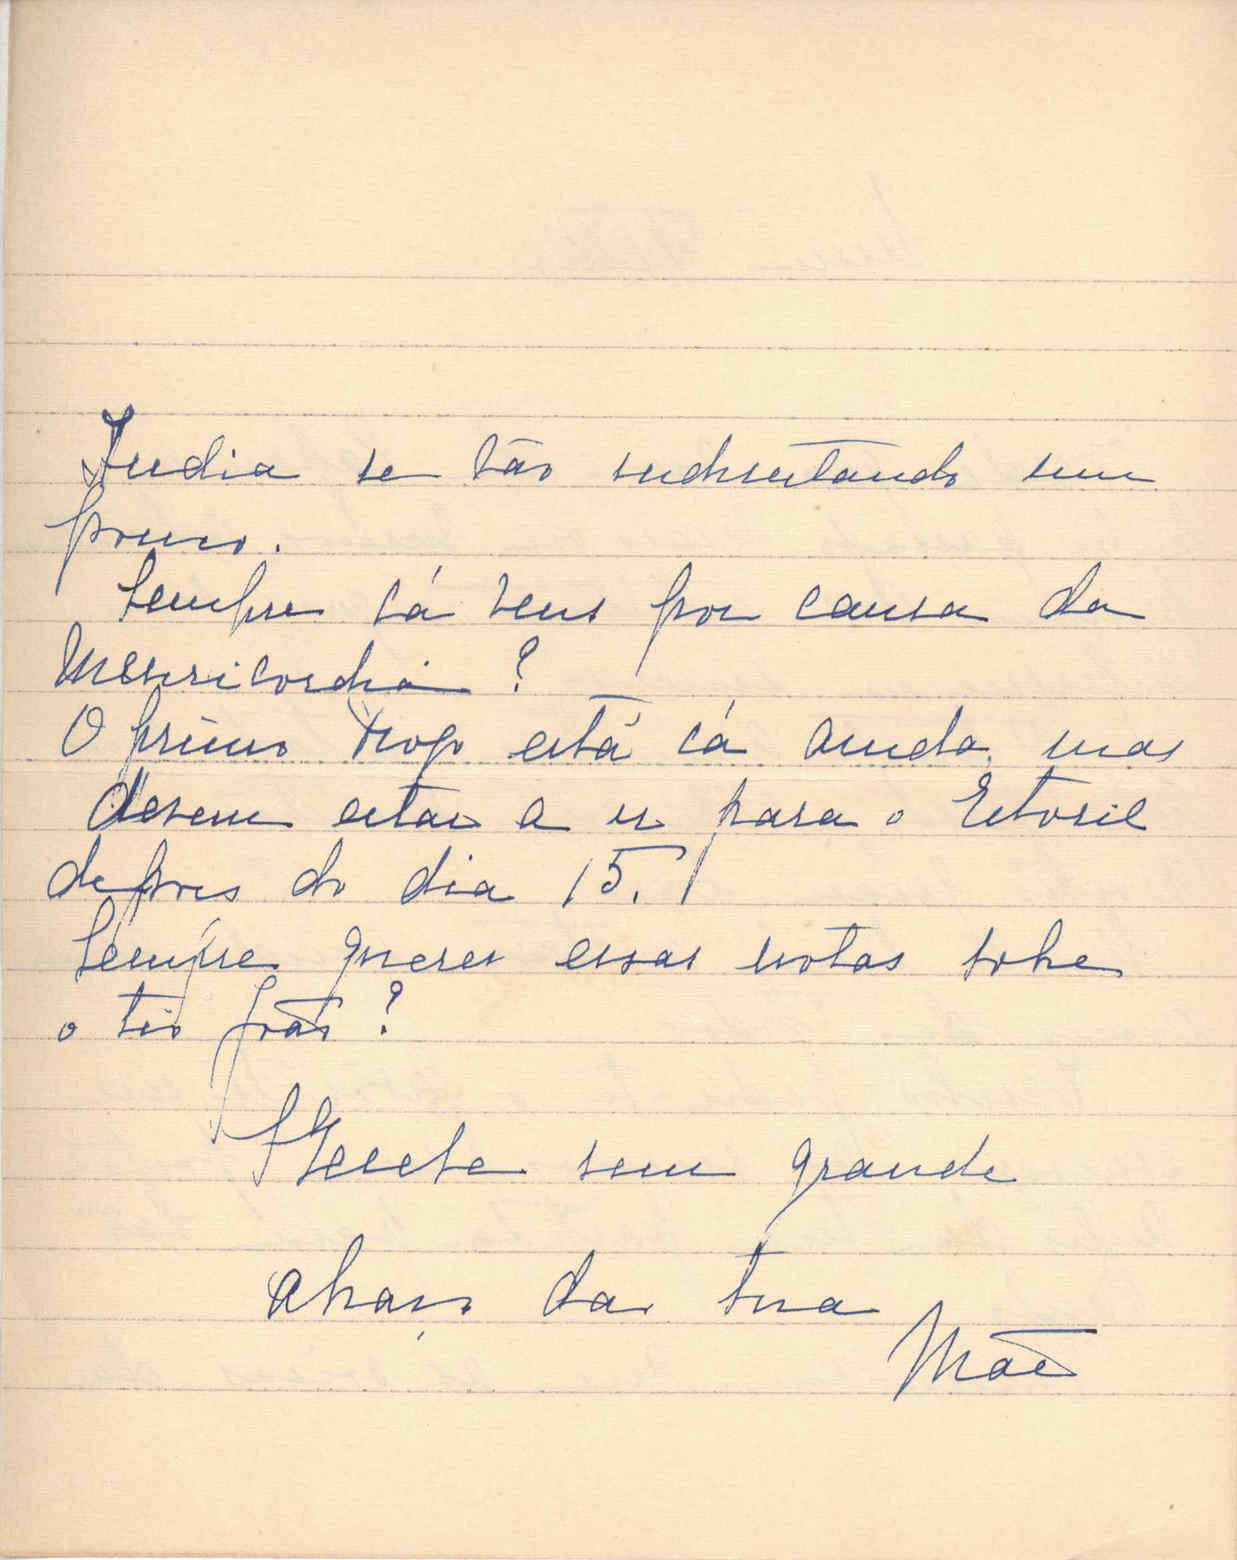 India se vão endireitando um
pouco.
Sempre cá vens por causa da
Misericordia?
O primo Diogo está cá ainda, mas
devem estar a ir para o Estoril
depois do dia 15.
Sempre queres essas notas sobre
o tio João?
Recebe um grande
abraço da tua
Mãe